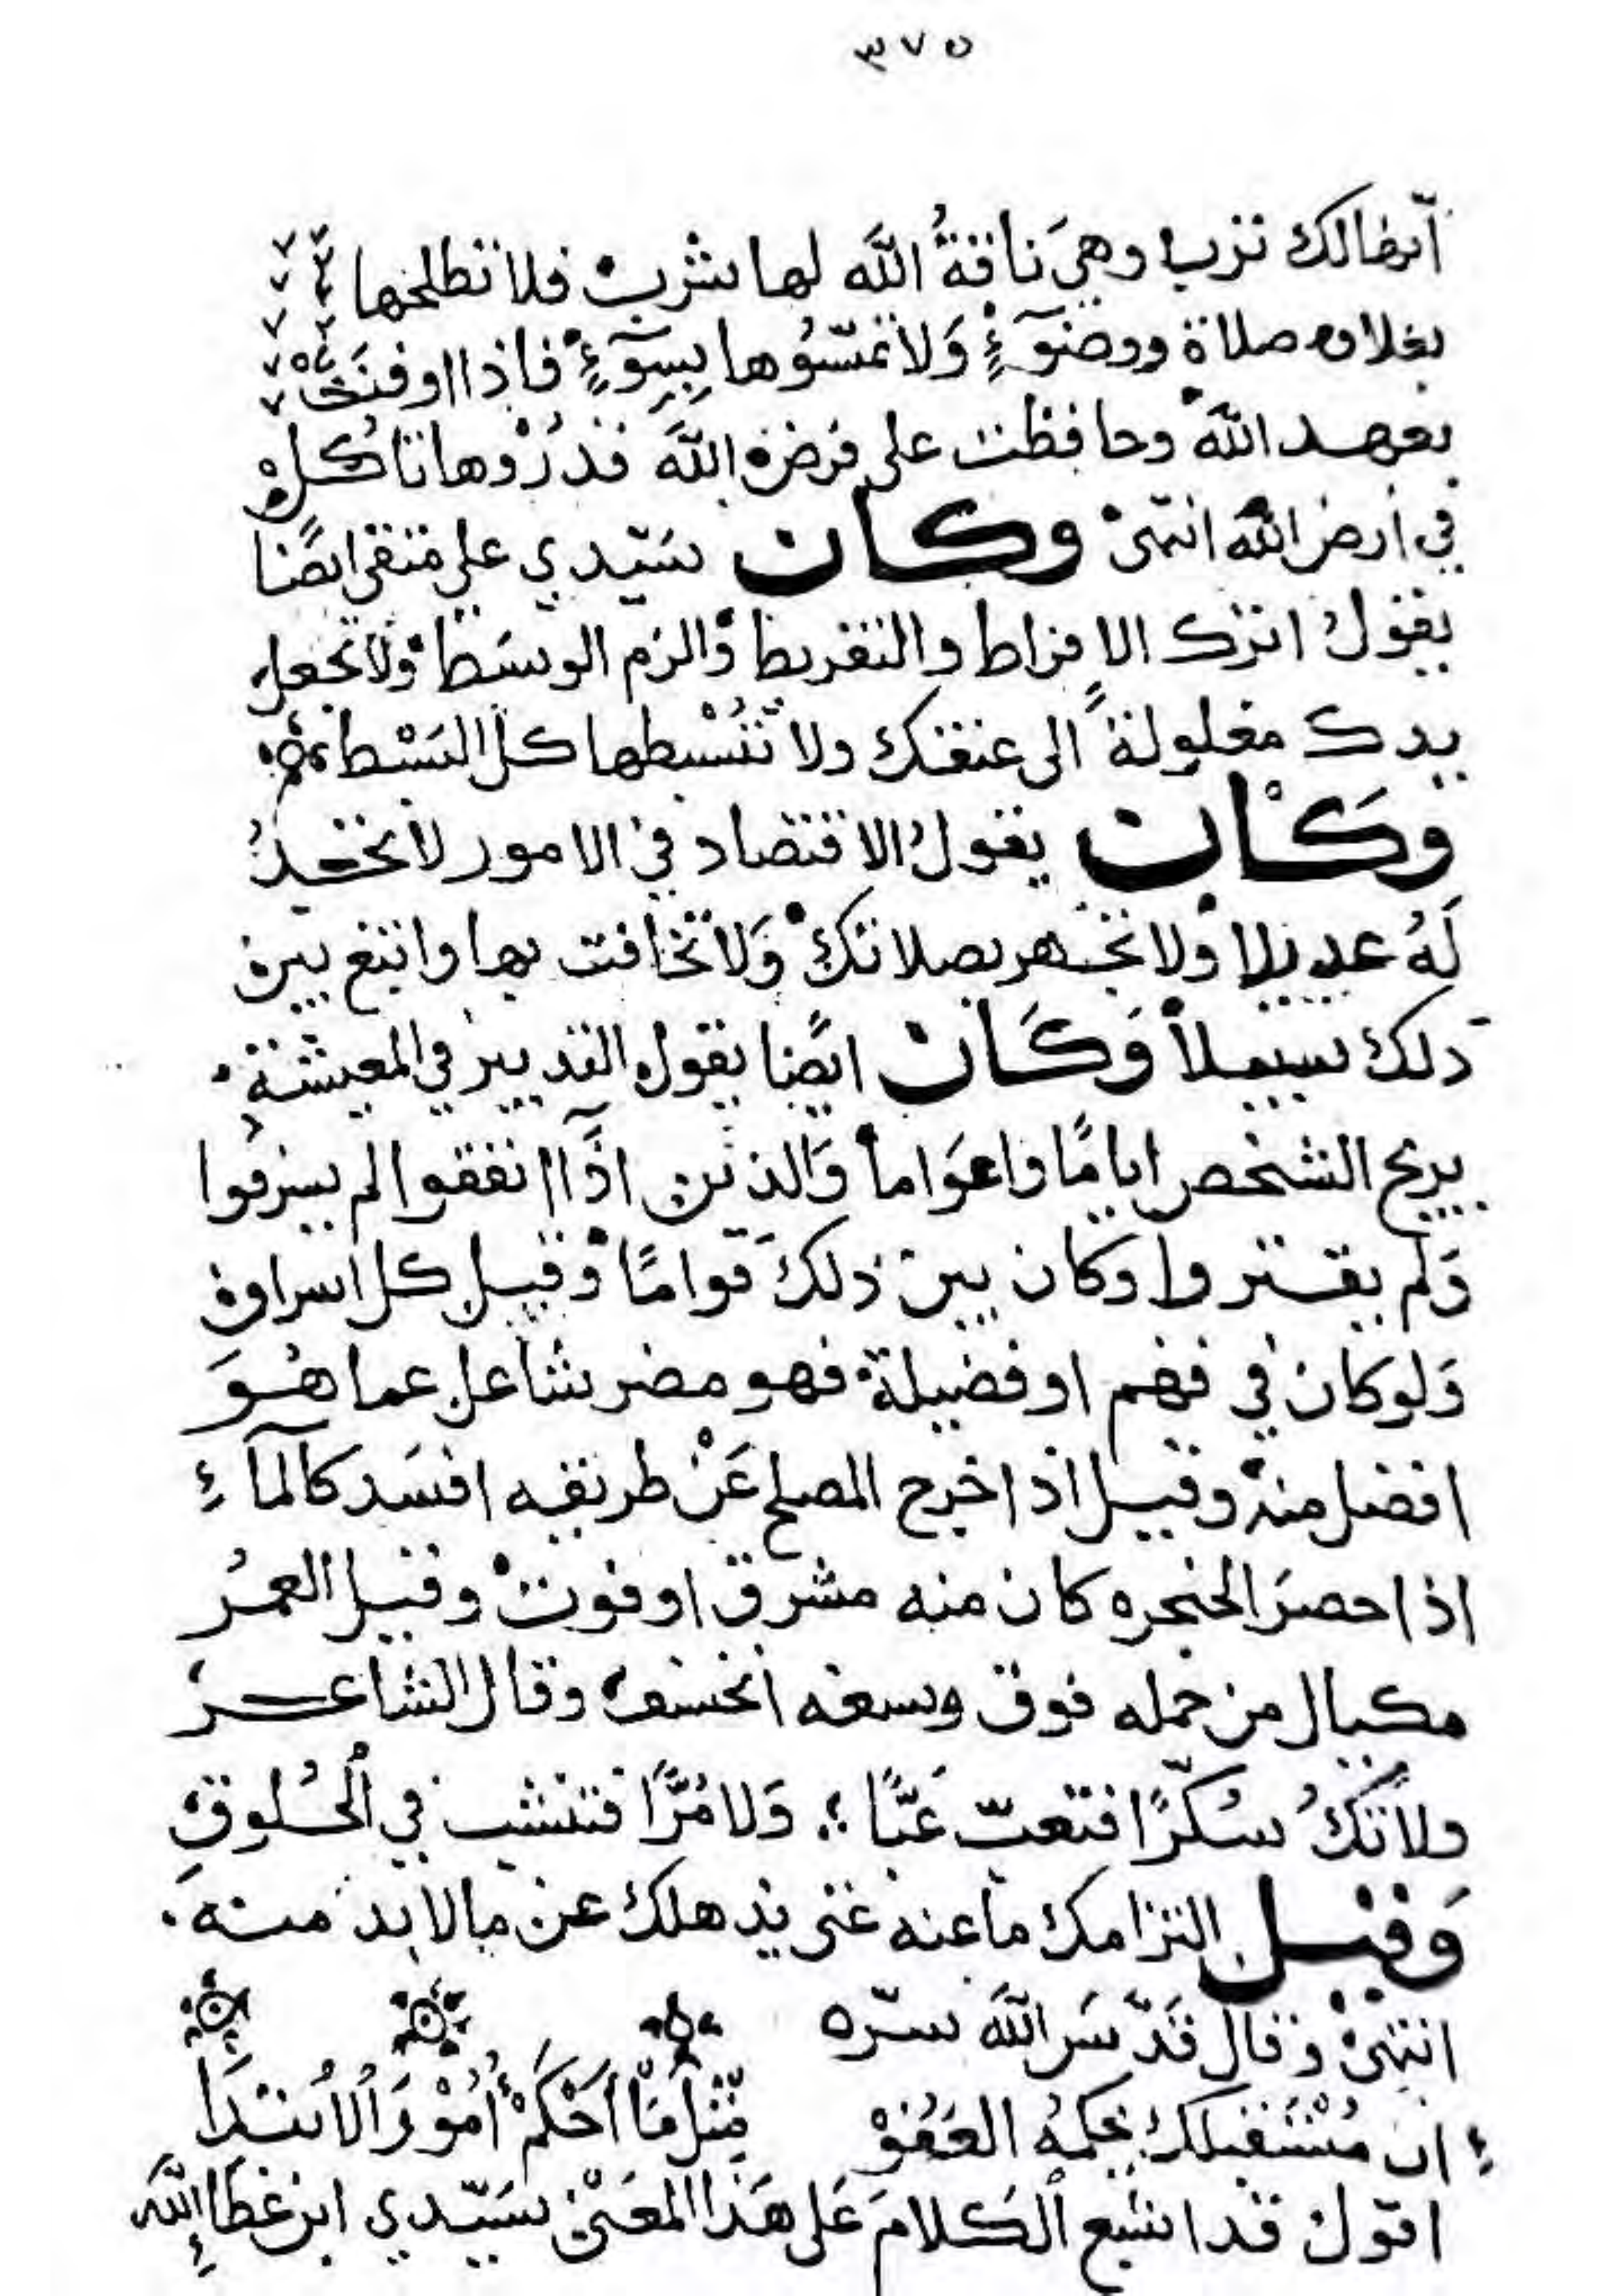 ٣٧٥
انها لك ترب وهي ناقةُ اللَّه لها شرب فلا تظلمها
بغلاوه صلاة ووضوٓءٍ وَلا تمسّوُها بِسوٓءٍ فاذا اوفت
بعهد اللَّه وحافظت على فرض اللَّه فذرُوْها تاكل
في أرض اللَّه انتهىٰ وكان سيّدي علي متقي ايضًا
يقولُ اترك الافراط والتفريط والزم الوسَط ولا تجعل
يدك مغلولةً الى عنقك ولا تَبْسُطها كل البَسْط
وَكَان يقولُ الاقتصاد في الامور لا تجدُ
لَهُ عديلا ولا تجهر بصلاتك وَلا تخافت بها وابتغ بين
ذلك سبيلاً وَكَان ايضًا يقول التدبير في المعيشة
يريح الشخص ايامًا واعوَاماً وَالذين اذَآ انفقوا لم يسرفوا
وَلم يقتروا وكان بين ذلكَ قوامًا وقيل كل اسراف
وَلو كان في فهم او فضيلة فهو مضر شاغل عما هُوَ
افضل منه وقيل اذا خرج المصلح عَنْ طريقه افسَد كالمآءِ
اذا حصرَ الحنجره كان منه شرق او فوت وقيل العمرُ
مكيال من حمله فوق وسعه انخسف وقال الشاعر
ولا تَكُ سُكّرًا فتعبّ عَبًّا ؛ وَلا مُرًّا فتنشب في اُلحُلوقِ
وَقيل التزامك ما عنه غنى يذهلك عن ما لا بد منه
انتهىٰ وقال قَدّسَ اللَّه سرّه
ان مُسْتَقبلك بحكمه العَفُوْ مِّثل مَا اَحْكَمَ أُمُوْرَ اُلاُبتدَا
اقول قد اشبع اُلكلامَ عَلى هَذا المعَنى سيّدي ابن عَطاءِ اللَّه